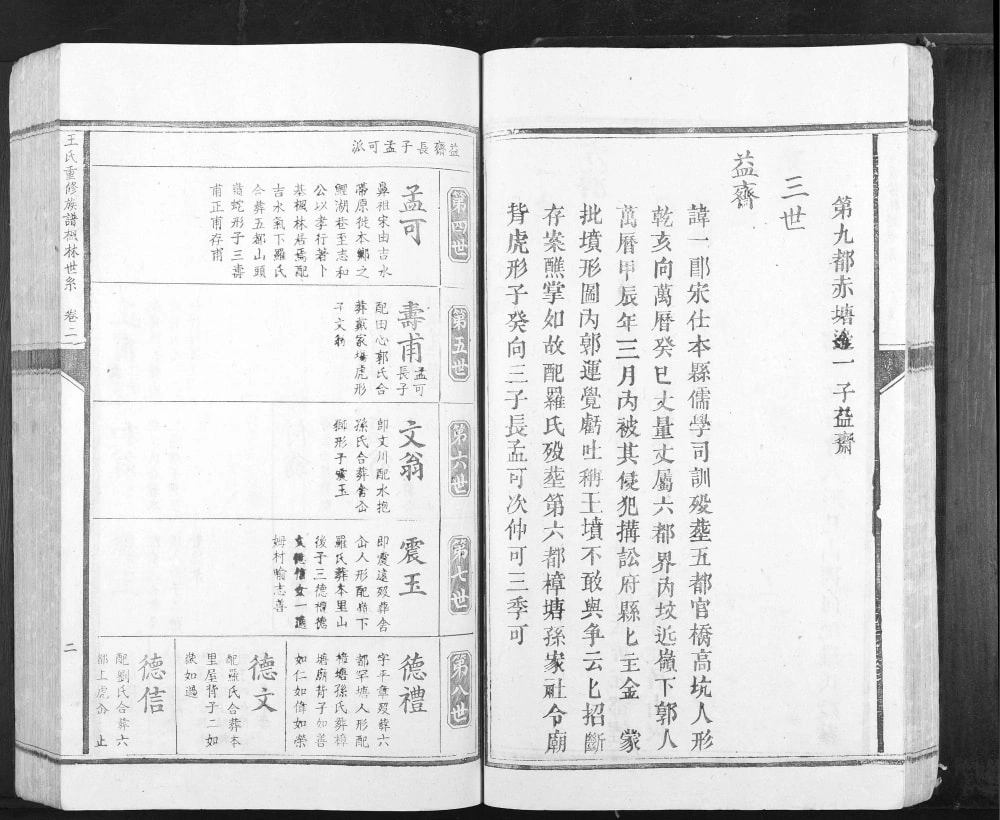 第九都赤塘遷一子益齋
三世
益齋
諱一郎宋仕本縣儒學司訓殁塟五都官橋高坑人形
乾亥向萬曆癸巳丈量丈屬六都界內坟近嶺下郭人
萬曆甲辰年三月內被其侵犯搆訟府縣匕主金 蒙
批墳形圖內郭運覺虧吐稱王墳不敢與争云匕招斷
存案醮掌如故配羅氏殁塟第六都樟塘孫家社令廟
背虎形子癸向三子長孟可次仲可三季可
王氏重修族譜楓林世系 卷二
二
益齋長子孟可派
第四世
孟可
鼻祖宋由吉水
蒂原徙本鄉之
鯉湖巷至志和
公以孝行著卜
基楓林居焉配
吉水氣下羅氏
合葬五都山頭
蒿蛇形子三壽
甫正甫存甫
第五世
壽甫 孟可長子
配田心郭氏合
葬戴家場虎形
子文翁
第六世
文翁
即文川配水抱
孫氏合葬舍㒰
獅形子震玉
第七世
震玉
即震遠殁葬舍
㒰人形配嶺下
羅氏葬本里山
後子三德禮德
文德信女一適
姆村喻志善
第八世
德禮
字平章殁葬六
都罕塘人形配
樟塘孫氏葬樟
塘廟背子如善
如仁如偉如榮
德文
配羅氏合葬本
里屋背子二如
嵗如過
德信
配劉氏合葬六
都上虎㒰 止